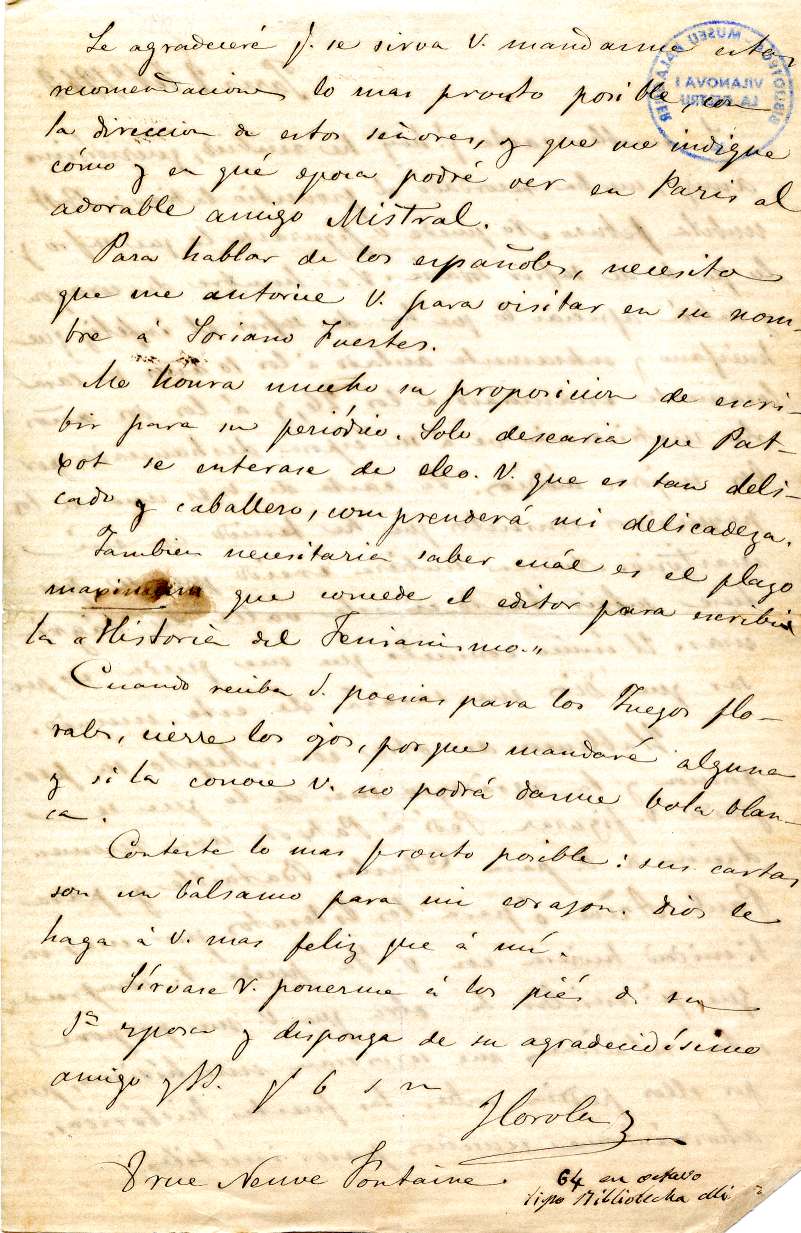 Le agradeceré q. se sirva V. mandarme estas
recomendaciones lo mas pronto posible, con
la direccion de estos señores, y que me indique
cómo y en qué época podré ver en Paris al
adorable amigo Mistral.
Para hablar de los españoles, necesito
que me autorice V. para visitar en su nom-
bre á Soriano Fuertes.
Me honra mucho su proposicion de escri-
bir para su periódico. Solo desearia que Pat-
xot se enterase de ello. V. que es tan deli-
cado y caballero, comprenderá mi delicadeza.
Tambien necesitaria saber cuál es el plazo
maximum que concede el editor para escribir
la «Historia del Fenianismo."
Cuando reciba V. poesias para los Juegos flo-
rales, cierre los ojos, porque mandaré alguna
y si la conoce V. no podrá darme bola blan-
ca.
Conteste lo mas pronto posible: sus cartas
son un bálsamo para mi corazon. Dios le
haga á V. mas feliz que á mí.
Sírvase V. ponerme á los piés de su
Sra esposa y disponga de su agradecidísimo
amigo
rue Neuve Fontaine.
64 en octavo
tipo Bibliotecha
BIBLIOTECA MUSEU BALAGUER
VILANOVA I
LA GELTRU